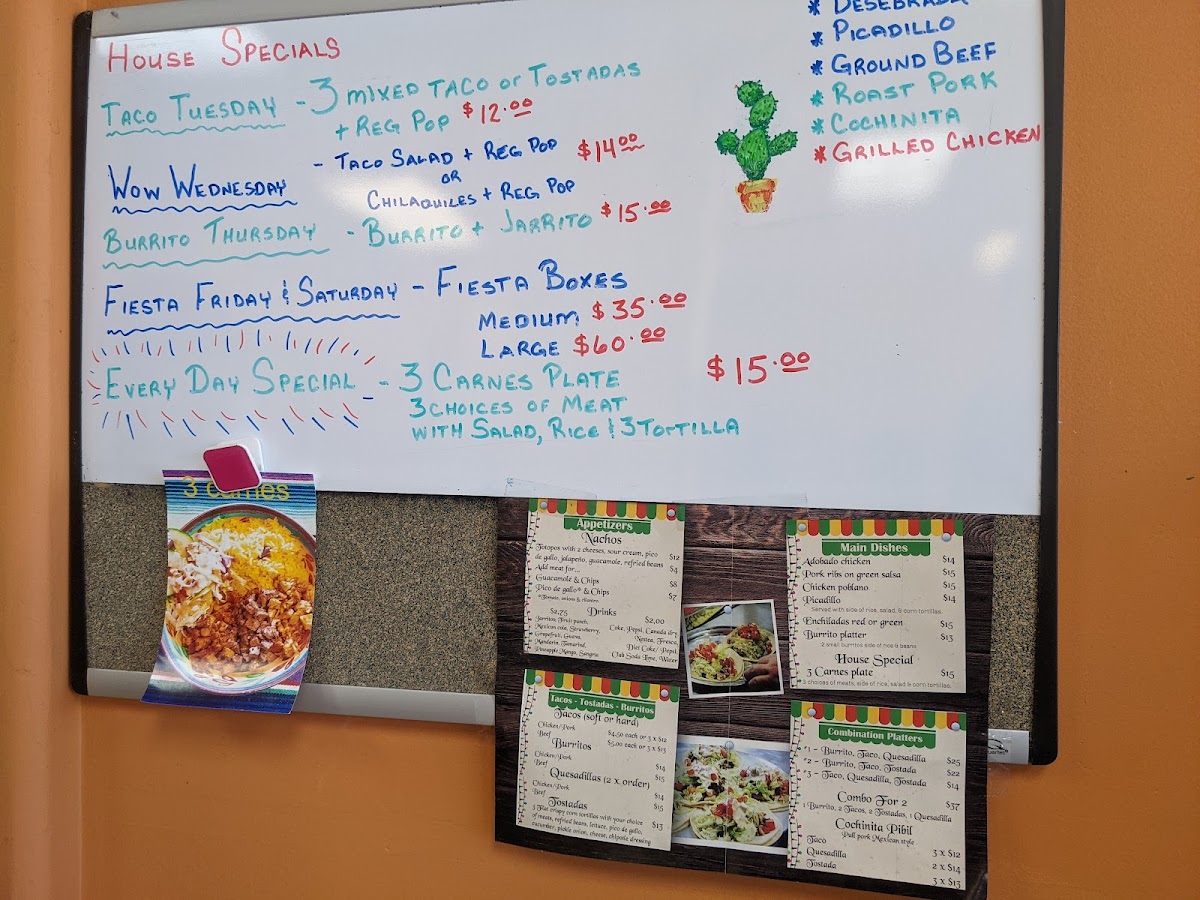 House Specials
Taco Tuesday - 3 mixed taco or Tostadas
+ Reg Pop $12.00
Wow Wednesday - Taco Salad + Reg Pop $14.00
or
Chilaquiles + Reg Pop
Burrito Thursday - Burrito + Jarrito $15.00
Fiesta Friday & Saturday - Fiesta Boxes
Medium $35.00
Large $60.00
Every Day Special - 3 Carnes Plate $15.00
3 choices of Meat
with Salad, Rice & 3 Tortilla
* Desebrada
* Picadillo
* Ground Beef
* Roast Pork
* Cochinita
* Grilled Chicken
3 carnes
Appetizers
Nachos
Totopos with 2 cheeses, sour cream, pico $12
de gallo, jalapeño, guacamole, refried beans
Add meat for... $4
Guacamole & Chips $8
Pico de gallo* & Chips $7
*Tomato, onions & cilantro
Drinks
$2,75
Jarritos, Fruit punch,
Mexican cola, Strawberry,
Grapefruit, Guava,
Mandarin, Tamarind,
Pineapple Mango, Sangria
$2,00
Coke, Pepsi, Canada dry
Nestea, Fresca,
Diet Coke/ Pepsi,
Club Soda Lime, Water
Main Dishes
Adobado chicken $14
Pork ribs on green salsa $15
Chicken poblano $15
Picadillo $14
Served with side of rice, salad, & corn tortillas.
Enchiladas red or green $15
Burrito platter $13
2 small burritos side of rice & beans
House Special
3 Carnes plate $15
3 choices of meats, side of rice, salad & corn tortillas.
Tacos - Tostadas - Burritos
Tacos (soft or hard)
Chicken/Pork $4,50 each or 3 x $12
Beef $5,00 each or 3 x $13
Burritos
Chicken/Pork $14
Beef $15
Quesadillas (2 x order)
Chicken/Pork $14
Beef $15
Tostadas
3 Flat crispy corn tortillas with your choice $13
of meats, refried beans, letuce, pico de gallo,
cucumber, pickle onion, cheese, chipotle dressing
Combination Platters
*1 - Burrito, Taco, Quesadilla $25
*2 - Burrito, Taco, Tostada $22
*3 - Taco, Quesadilla, Tostada $14
Combo For 2 $37
1 Burrito, 2 Tacos, 2 Tostadas, 1 Quesadilla
Cochinita Pibil
Pull pork Mexican style
Taco 3 x $12
Quesadilla 2 x $14
Tostada 3 x $13